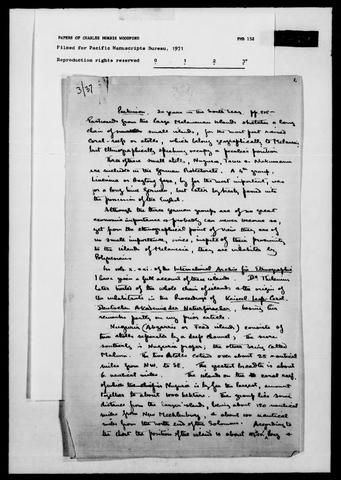 PAPERS OF CHARLES MORRIS WOODFORD
PMB 152
Filmed for Pacific Manuscripts Bureau, 1971
Reproduction rights reserved
0 1 2 3"
3/37
1.
Parkinson. 30 years in the South Seas. pp. 515-
Partitioned from the large Melanesian islands stretches a long
chain of smaller small islands, for the most part raised
coral-reefs or atolls, which belong geographically to Melanesia,
but ethnographically speaking occupy a peculiar position.
Three of these small atolls, Nuguria, Tauu & Nukumanu
are included in the German Protectorate. A 4th group,
Liueniua or Ongtong Java, by far the most important, was
for a long time German, but later by treaty passed into
the possession of the English.
Although the three German groups are of no great
economic importance & probably can never become so,
yet from the ethnographical point of view they are of
no small importance, since, inspite of their proximity
to the islands of Melanesia, they are inhabited by
Polynesians
In vols. x. & xi. of the International Archiv für Ethnographie
I have given a full account of these islands. Dr Thilenius
later treats of the whole chain of islands & the origin of
the inhabitants in the Proceedings of Kaiserl. Leop. Carol.
Deutsche Akademie der Naturforscher, basing his
remarks partly on my prior article.
Nuguria (Abgarris or Fead islands) consists of
two atolls separated by a deep channel; the more
southerly is Nuguria proper, the other being called
Malum. The two atolls extend over about 25 nautical
miles from NW. to SE. The greatest breadth is about
6 nautical miles. The islands on the coral reef,
of which the chief is Nuguria is by far the largest, amount
together to about 500 hektars. The group lies some
distance from the larger islands, being about 150 nautical
miles from New Mecklenburg, & about 100 nautical
miles from the north end of the Solomons. According to
the chart the position of the island is about